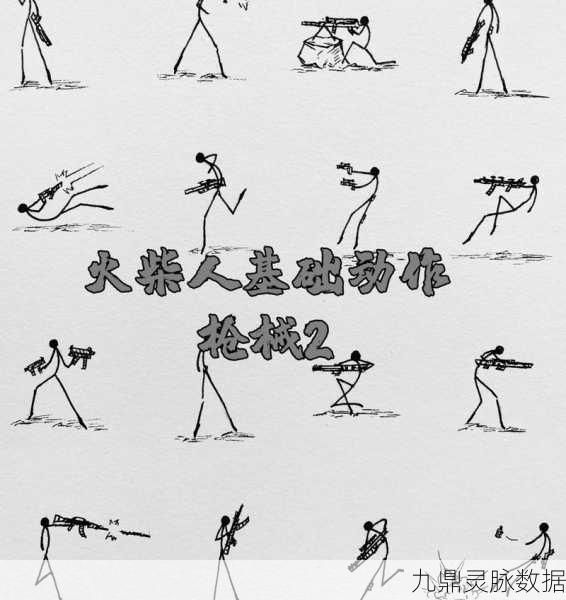 火柴人基础动作
枪械2
九鼎灵脉数据